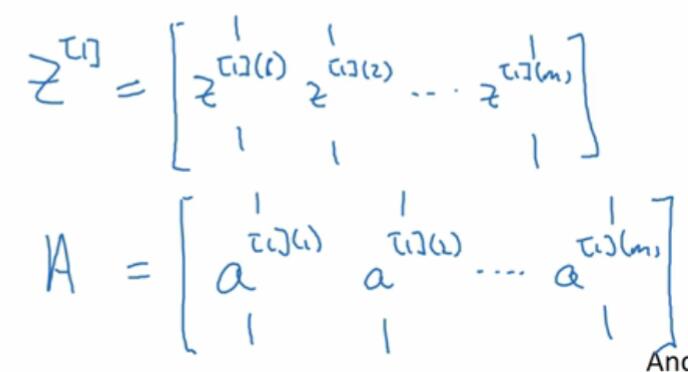 Z^[1] = [ z^[1](1) z^[1](2) .... z^[1](m) ]
A = [ a^[1](1) a^[1](2) .... a^[1](m) ]
And